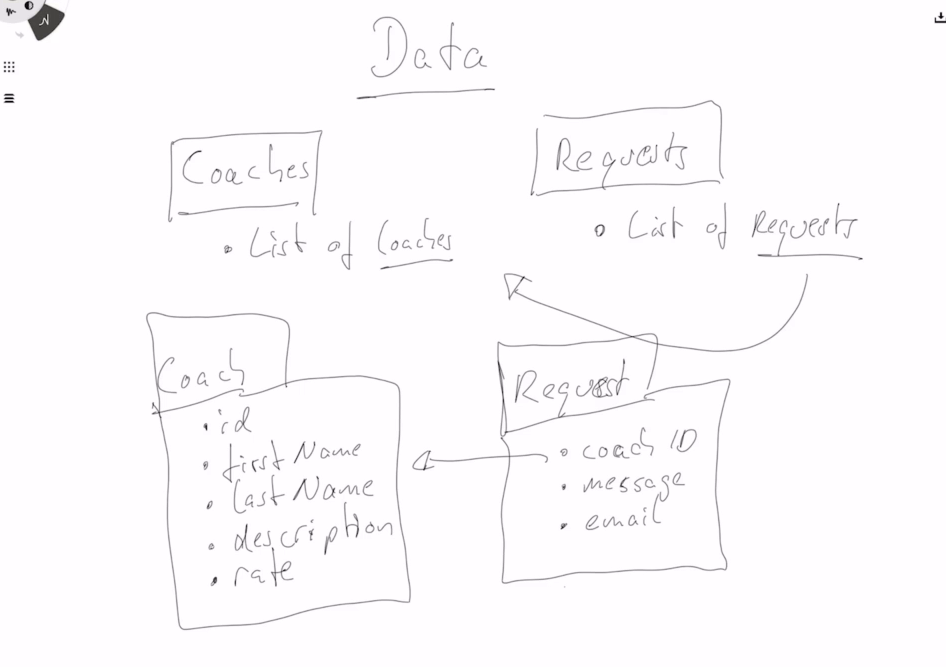 Data
Coaches
• List of Coaches
Requests
• List of Requests
Coach
• id
• firstName
• lastName
• description
• rate
Request
• coach ID
• message
• email